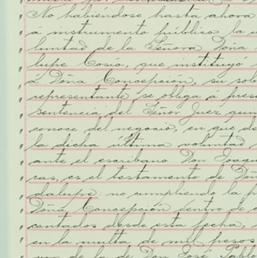 No habiéndose hasta ahora
a instrumento público la u
luntad de la Señora Doña
lupe Cosío, que instituyó
á Doña Concepción, su sob
representante se obliga á pres
sentencia del Señor Juez que
conoce del negocio, en que de
la dicha última voluntad
ante el escribano Don Joaqu
cas, es el testamento de Doña
dalupe, no cumpliendo la
Doña Concepción dentro de
contados desde esta fecha,
en la multa de mil pesos
de Don José Pablo